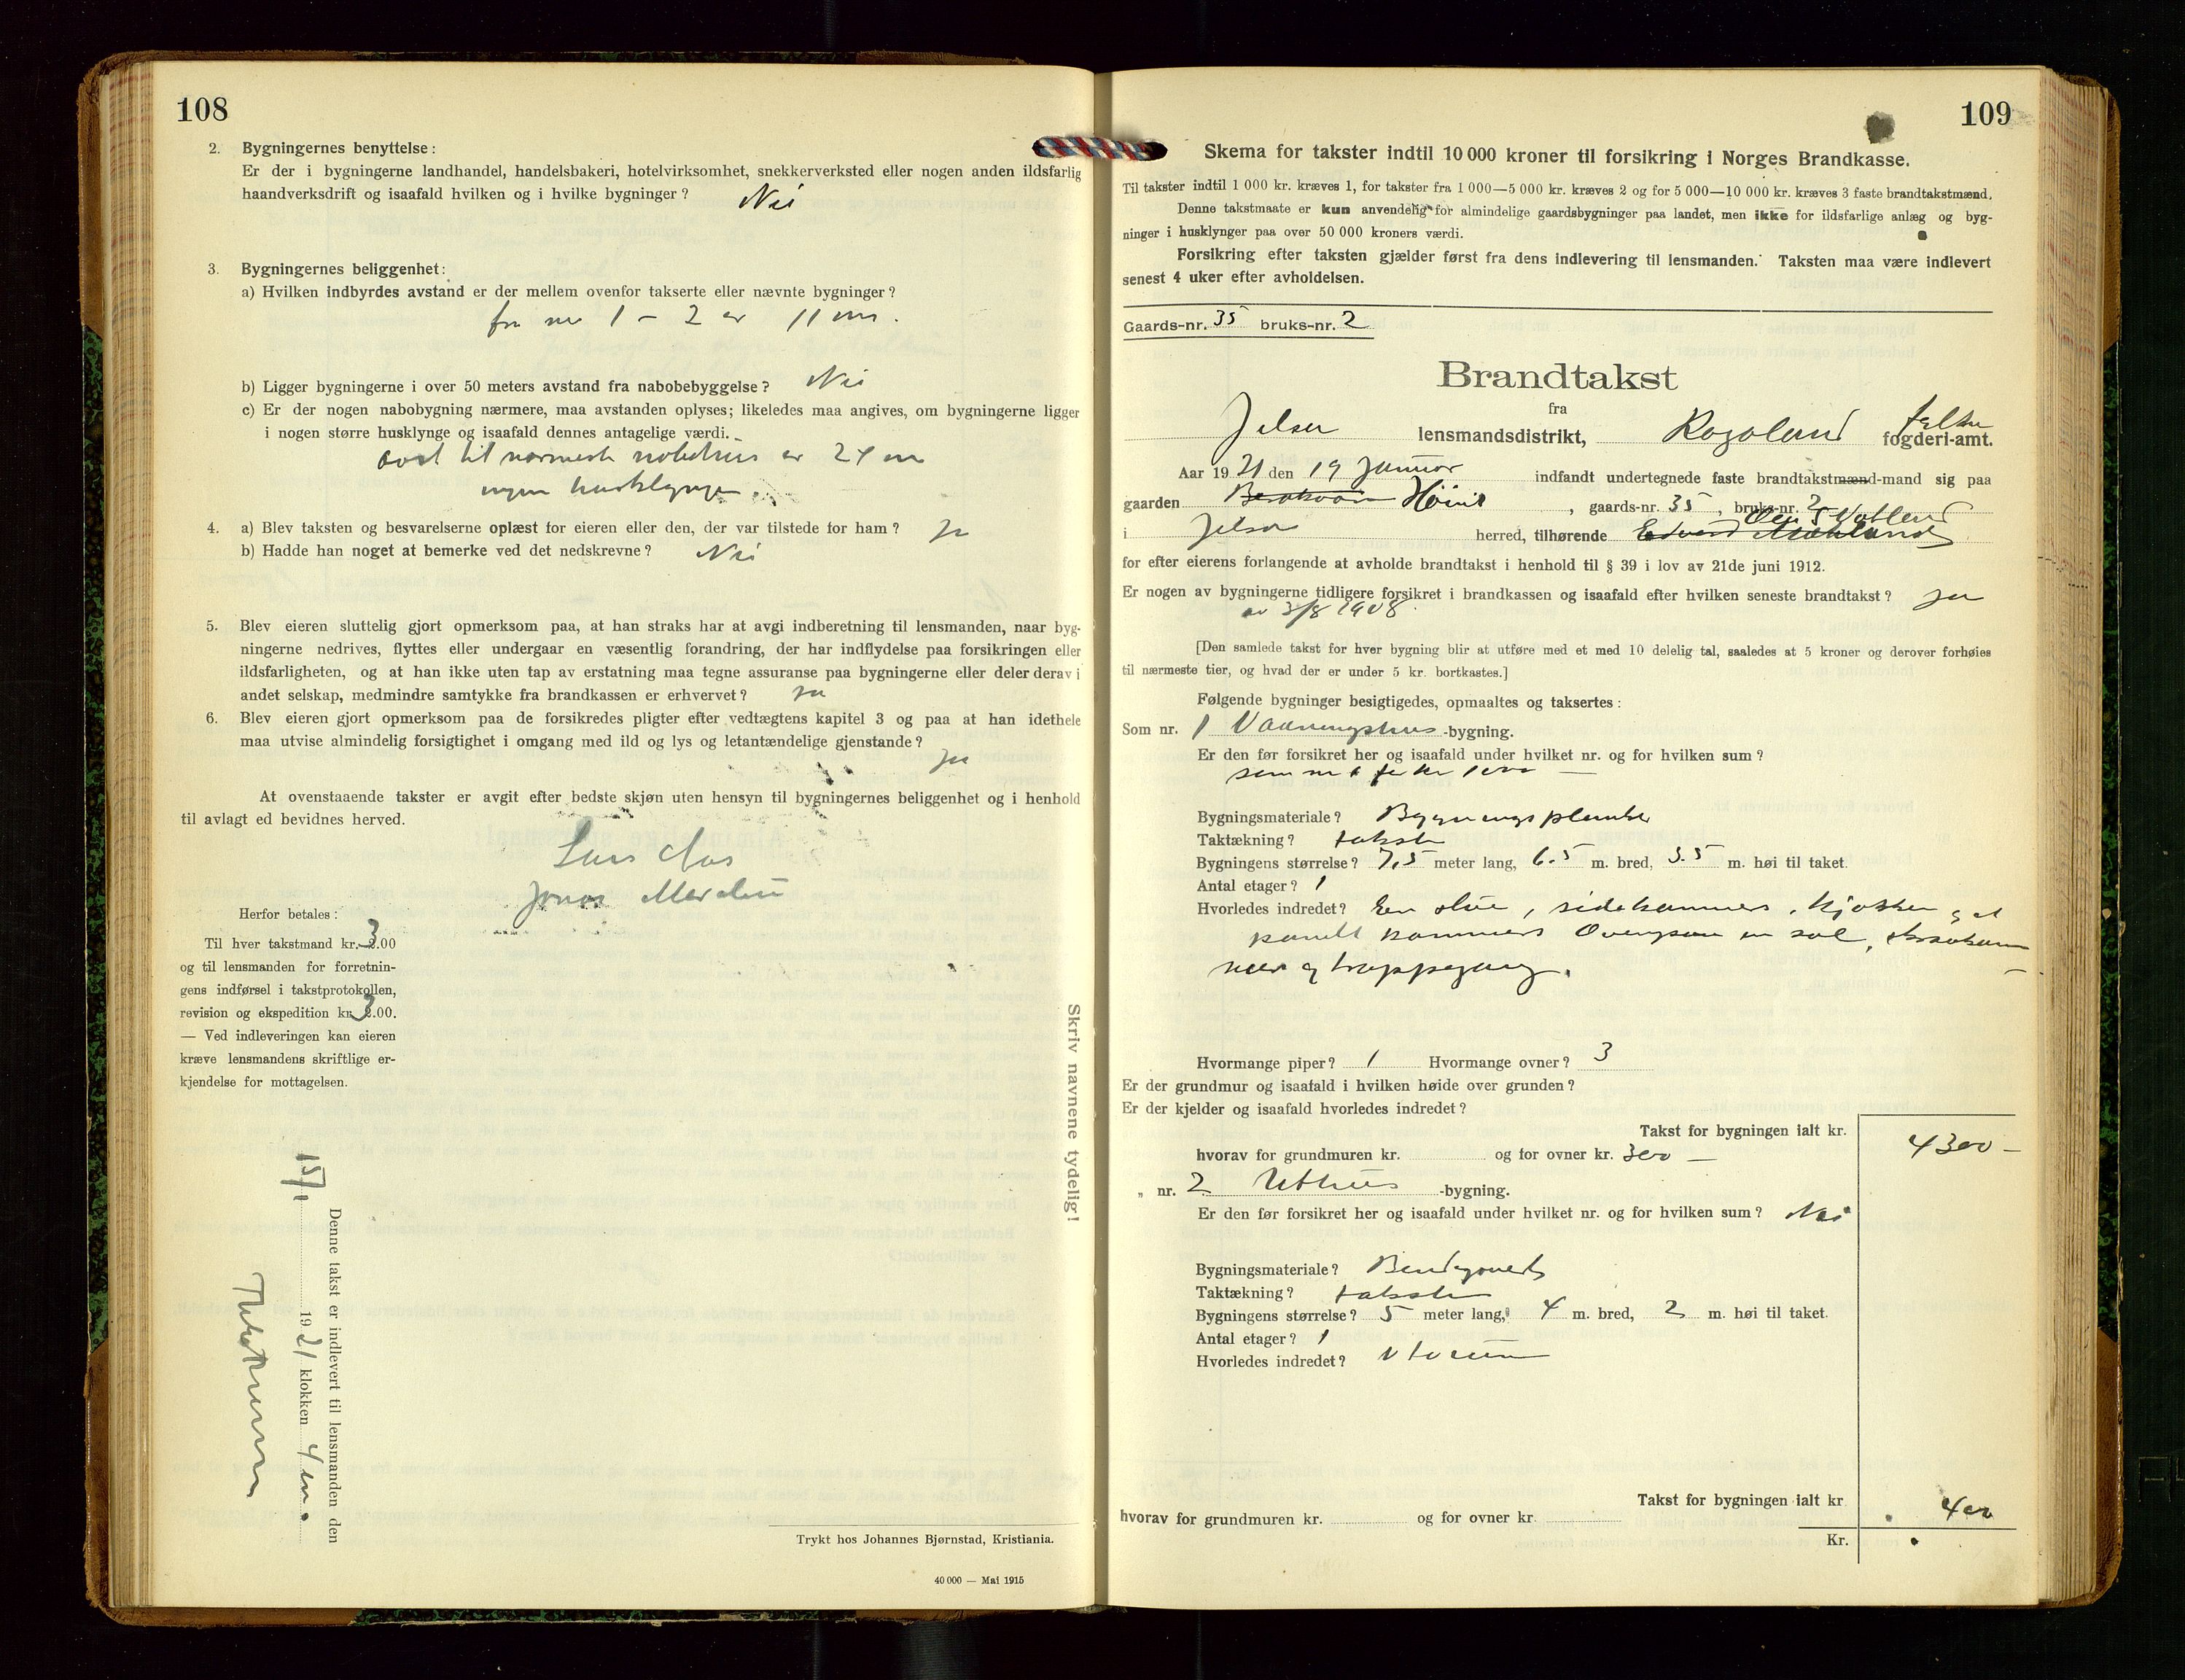 108
2. Bygningernes benyttelse:
Er der i bygningerne landhandel, handelsbakeri, hotelvirksomhet, snekkerverksted eller nogen anden ildsfarlig
haandverksdrift og isaafald hvilken og i hvilke bygninger? Nei
3. Bygningernes beliggenhet:
a) Hvilken indbyrdes avstand er der mellem ovenfor takserte eller nævnte bygninger?
fra nr 1 - 2 er 11 m.
b) Ligger bygningerne i over 50 meters avstand fra nabobebyggelse? Nei
c) Er der nogen nabobygning nærmere, maa avstanden oplyses; likeledes maa angives, om bygningerne ligger
i nogen større husklynge og isaafald dennes antagelige værdi.
avst til nærmeste nabohus er 24 m
ingen husklynge.
4. a) Blev taksten og besvarelserne oplæst for eieren eller den, der var tilstede for ham? Ja
b) Hadde han noget at bemerke ved det nedskrevne? Nei
5. Blev eieren sluttelig gjort opmerksom paa, at han straks har at avgi indberetning til lensmanden, naar byg-
ningerne nedrives, flyttes eller undergaar en væsentlig forandring, der har indflydelse paa forsikringen eller
ildsfarligheten, og at han ikke uten tap av erstatning maa tegne assuranse paa bygningerne eller deler derav i
andet selskap, medmindre samtykke fra brandkassen er erhvervet? ja
6. Blev eieren gjort opmerksom paa de forsikredes pligter efter vedtægtens kapitel 3 og paa at han idethele
maa utvise almindelig forsigtighet i omgang med ild og lys og letantændelige gjenstande?
ja
At ovenstaaende takster er avgit efter bedste skjøn uten hensyn til bygningernes beliggenhet og i henhold
til avlagt ed bevidnes herved.
Lars
Jonas
Herfor betales:
Til hver takstmand kr. 3.00
og til lensmanden for forretnin-
gens indførsel i takstprotokollen,
revision og ekspedition kr. 3.00.
— Ved indleveringen kan eieren
kræve lensmandens skriftlige er-
kjendelse for mottagelsen.
Skriv navnene tydelig!
Denne takst er indlevert til lensmanden den
15/1 1921 klokken 4 em.
Trykt hos Johannes Bjørnstad, Kristiania.
40 000 — Mai 1915
109
Skema for takster indtil 10 000 kroner til forsikring i Norges Brandkasse.
Til takster indtil 1 000 kr. kræves 1, for takster fra 1 000—5 000 kr. kræves 2 og for 5 000—10 000 kr. kræves 3 faste brandtakstmænd.
Denne takstmaate er kun anvendelig for almindelige gaardsbygninger paa landet, men ikke for ildsfarlige anlæg og byg-
ninger i husklynger paa over 50 000 kroners værdi.
Forsikring efter taksten gjælder først fra dens indlevering til lensmanden. Taksten maa være indlevert
senest 4 uker efter avholdelsen.
Gaards-nr. 35 bruks-nr. 2
Brandtakst
fra
Jelsa lensmandsdistrikt, Rogaland fylke fogderi-amt.
Aar 1921 den 19 Januar indfandt undertegnede faste brandtakstmænd-mand sig paa
gaarden Høivik, gaards-nr. 35, bruks-nr. 2
i Jelsa herred, tilhørende Edvard
for efter eierens forlangende at avholde brandtakst i henhold til § 39 i lov av 21de juni 1912.
Er nogen av bygningerne tidligere forsikret i brandkassen og isaafald efter hvilken seneste brandtakst? ja
av 3/8 1908.
[Den samlede takst for hver bygning blir at utføre med et med 10 delelig tal, saaledes at 5 kroner og derover forhøies
til nærmeste tier, og hvad der er under 5 kr. bortkastes.]
Følgende bygninger besigtigedes, opmaaltes og taksertes:
Som nr. 1 Vaaningshus -bygning.
Er den før forsikret her og isaafald under hvilket nr. og for hvilken sum?
som nr 1 for kr 1000 —
Bygningsmateriale? Bygningsplanker
Taktækning? taksten
Bygningens størrelse? 7,5 meter lang, 6.5 m. bred, 3.5 m. høi til taket.
Antal etager? 1
Hvorledes indredet? En stue, sidekammers, kjøkken og et
panelt kammers Ovenpaa en sal, skraakam
mer og trappegang.
Hvormange piper? 1 Hvormange ovner? 3
Er der grundmur og isaafald i hvilken høide over grunden?
Er der kjelder og isaafald hvorledes indredet?
Takst for bygningen ialt kr. 4300 —
hvorav for grundmuren kr. og for ovner kr. 300 —
„ nr. 2 Uthus -bygning.
Er den før forsikret her og isaafald under hvilket nr. og for hvilken sum? Nei
Bygningsmateriale? Bindingsverk
Taktækning? taksten
Bygningens størrelse? 5 meter lang, 4 m. bred, 2 m. høi til taket.
Antal etager? 1
Hvorledes indredet? 1 to rum
Takst for bygningen ialt kr. 400
hvorav for grundmuren kr. og for ovner kr.
Kr.